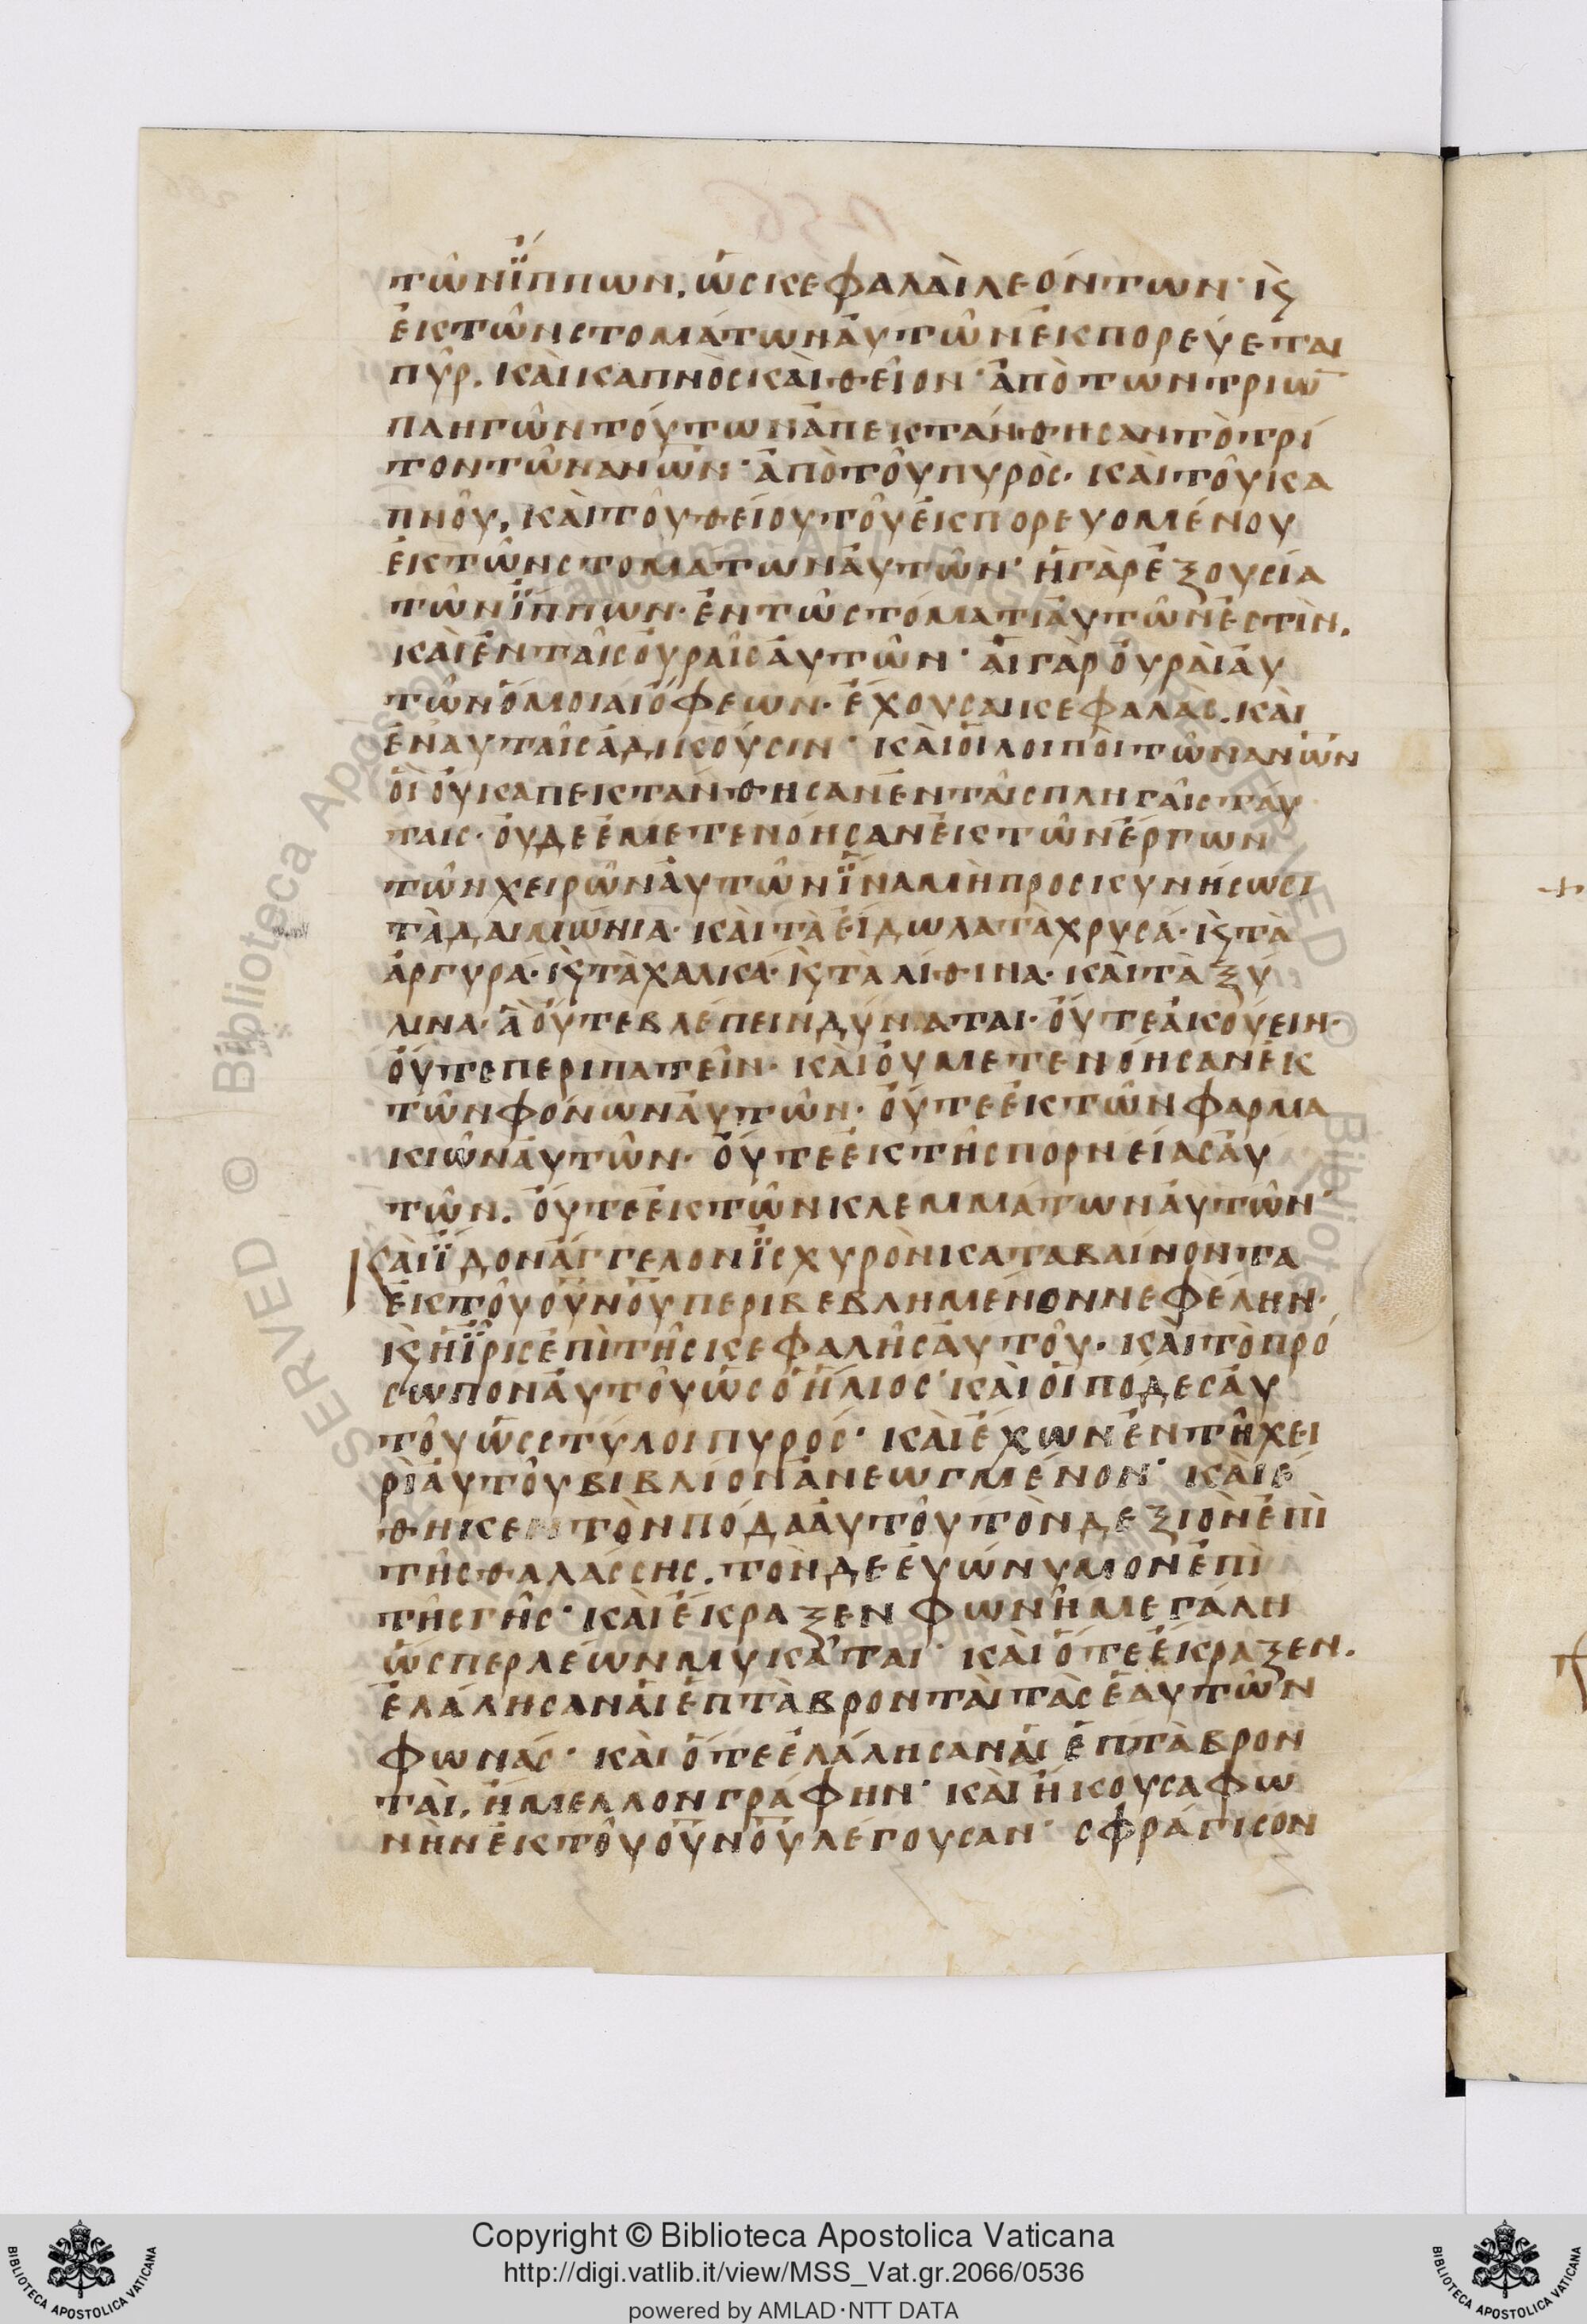 τῶν ἵππων, ὡς κεφαλαὶ λεόντων· κ(αὶ)
ἐκ τῶν στομάτων αὐτῶν ἐκπορεύεται
πῦρ. καὶ καπνὸς καὶ θεῖον· ἀπὸ τῶν τριῶ̅
πληγῶν τούτων ἀπεκτάνθησαν τὸ τρί
τον τῶν ἀνῶν· ἀπὸ τοῦ πυρὸς· καὶ τοῦ κα
πνοῦ, καὶ τοῦ θείου τοῦ ἐκπορευομένου
ἐκ τῶν στομάτων αὐτῶν· ἡ γὰρ ἐξουσία
τῶν ἵππων· ἐν τῷ στόματι αὐτῶν ἐστὶν.
καὶ ἐν ταῖς οὐραῖς αὐτῶν· αἱ γὰρ οὐραὶ αὐ
τῶν ὅμοιαι ὄφεων· ἔχουσαι κεφαλὰς. καὶ
ἐν αὐταῖς ἀδικοῦσιν· καὶ οἱ λοιποὶ τῶν ἀνῶν
οἳ οὐκ ἀπεκτάνθησαν ἐν ταῖς πληγαῖς ταύ
ταις· οὐδεὲ μετενόησαν ἐκ τῶν ἔργων
τῶν χειρῶν αὐτῶν ἵνα μὴ προσκυνήσωσι
τὰ δαιμώνια· καὶ τὰ εἴδωλα τὰ χρυσά· κ(αὶ) τὰ
ἀργυρά· κ(αὶ) τὰ χαλκά· κ(αὶ) τὰ λίθινα· καὶ τὰ ξύ
λινα· ἃ οὔτε βλέπειν δύναται· οὔτε ἀκούειν·
οὔτε περιπατεῖν· καὶ οὐ μετενόησαν ἐκ
τῶν φόνων αὐτῶν· οὔτε ἐκ τῶν φαρμα
κιῶν αὐτῶν· οὔτε ἐκ τῆς πορνείας αὐ
τῶν. οὔτε ἐκ τῶν κλεμμάτων αὐτῶν·
Καὶ ἴδον ἄγγελον ἰσχυρὸν καταβαίνοντα
ἐκ τοῦ οὐνοῦ περιβεβλημένον νεφέλην·
κ(αὶ) ἡ ἶρις ἐπὶ τῆς κεφαλῆς αὐτοῦ· καὶ τὸ πρό
σωπον αὐτοῦ ὡς ὁ ἥλιος· καὶ οἱ πόδες αὐ
τοῦ ὡς στύλοι πυρός· καὶ ἔχων ἐν τῇ χει
ρὶ αὐτοῦ βιβλίον ἀνεωγμένον· καὶ ἔ
θηκεν τὸν πόδα αὐτοῦ τὸν δεξιὸν ἐπὶ
τῆς θαλάσσης. τὸν δὲ εὐώνυμον ἐπὶ
τῆς γῆς· καὶ ἔκραξεν φωνῇ μεγάλη
ὥσπερ λέων μυκᾶται· καὶ ὅτε ἔκραξεν.
ἐλάλησαν αἱ ἑπτὰ βρονταὶ τὰς ἑαυτῶν
φωνάς· καὶ ὅτε ἐλάλησαν αἱ ἑπτὰ βρον
ταὶ. ἤμελλον γράφην· καὶ ἤκουσα φω
νὴν ἐκ τοῦ οὐνοῦ λέγουσαν· σφράγισον
Copyright © Biblioteca Apostolica Vaticana
http://digi.vatlib.it/view/MSS_Vat.gr.2066/0536
powered by AMLAD·NTT DATA
BIBLIOTECA APOSTOLICA VATICANA
BIBLIOTECA APOSTOLICA VATICANA